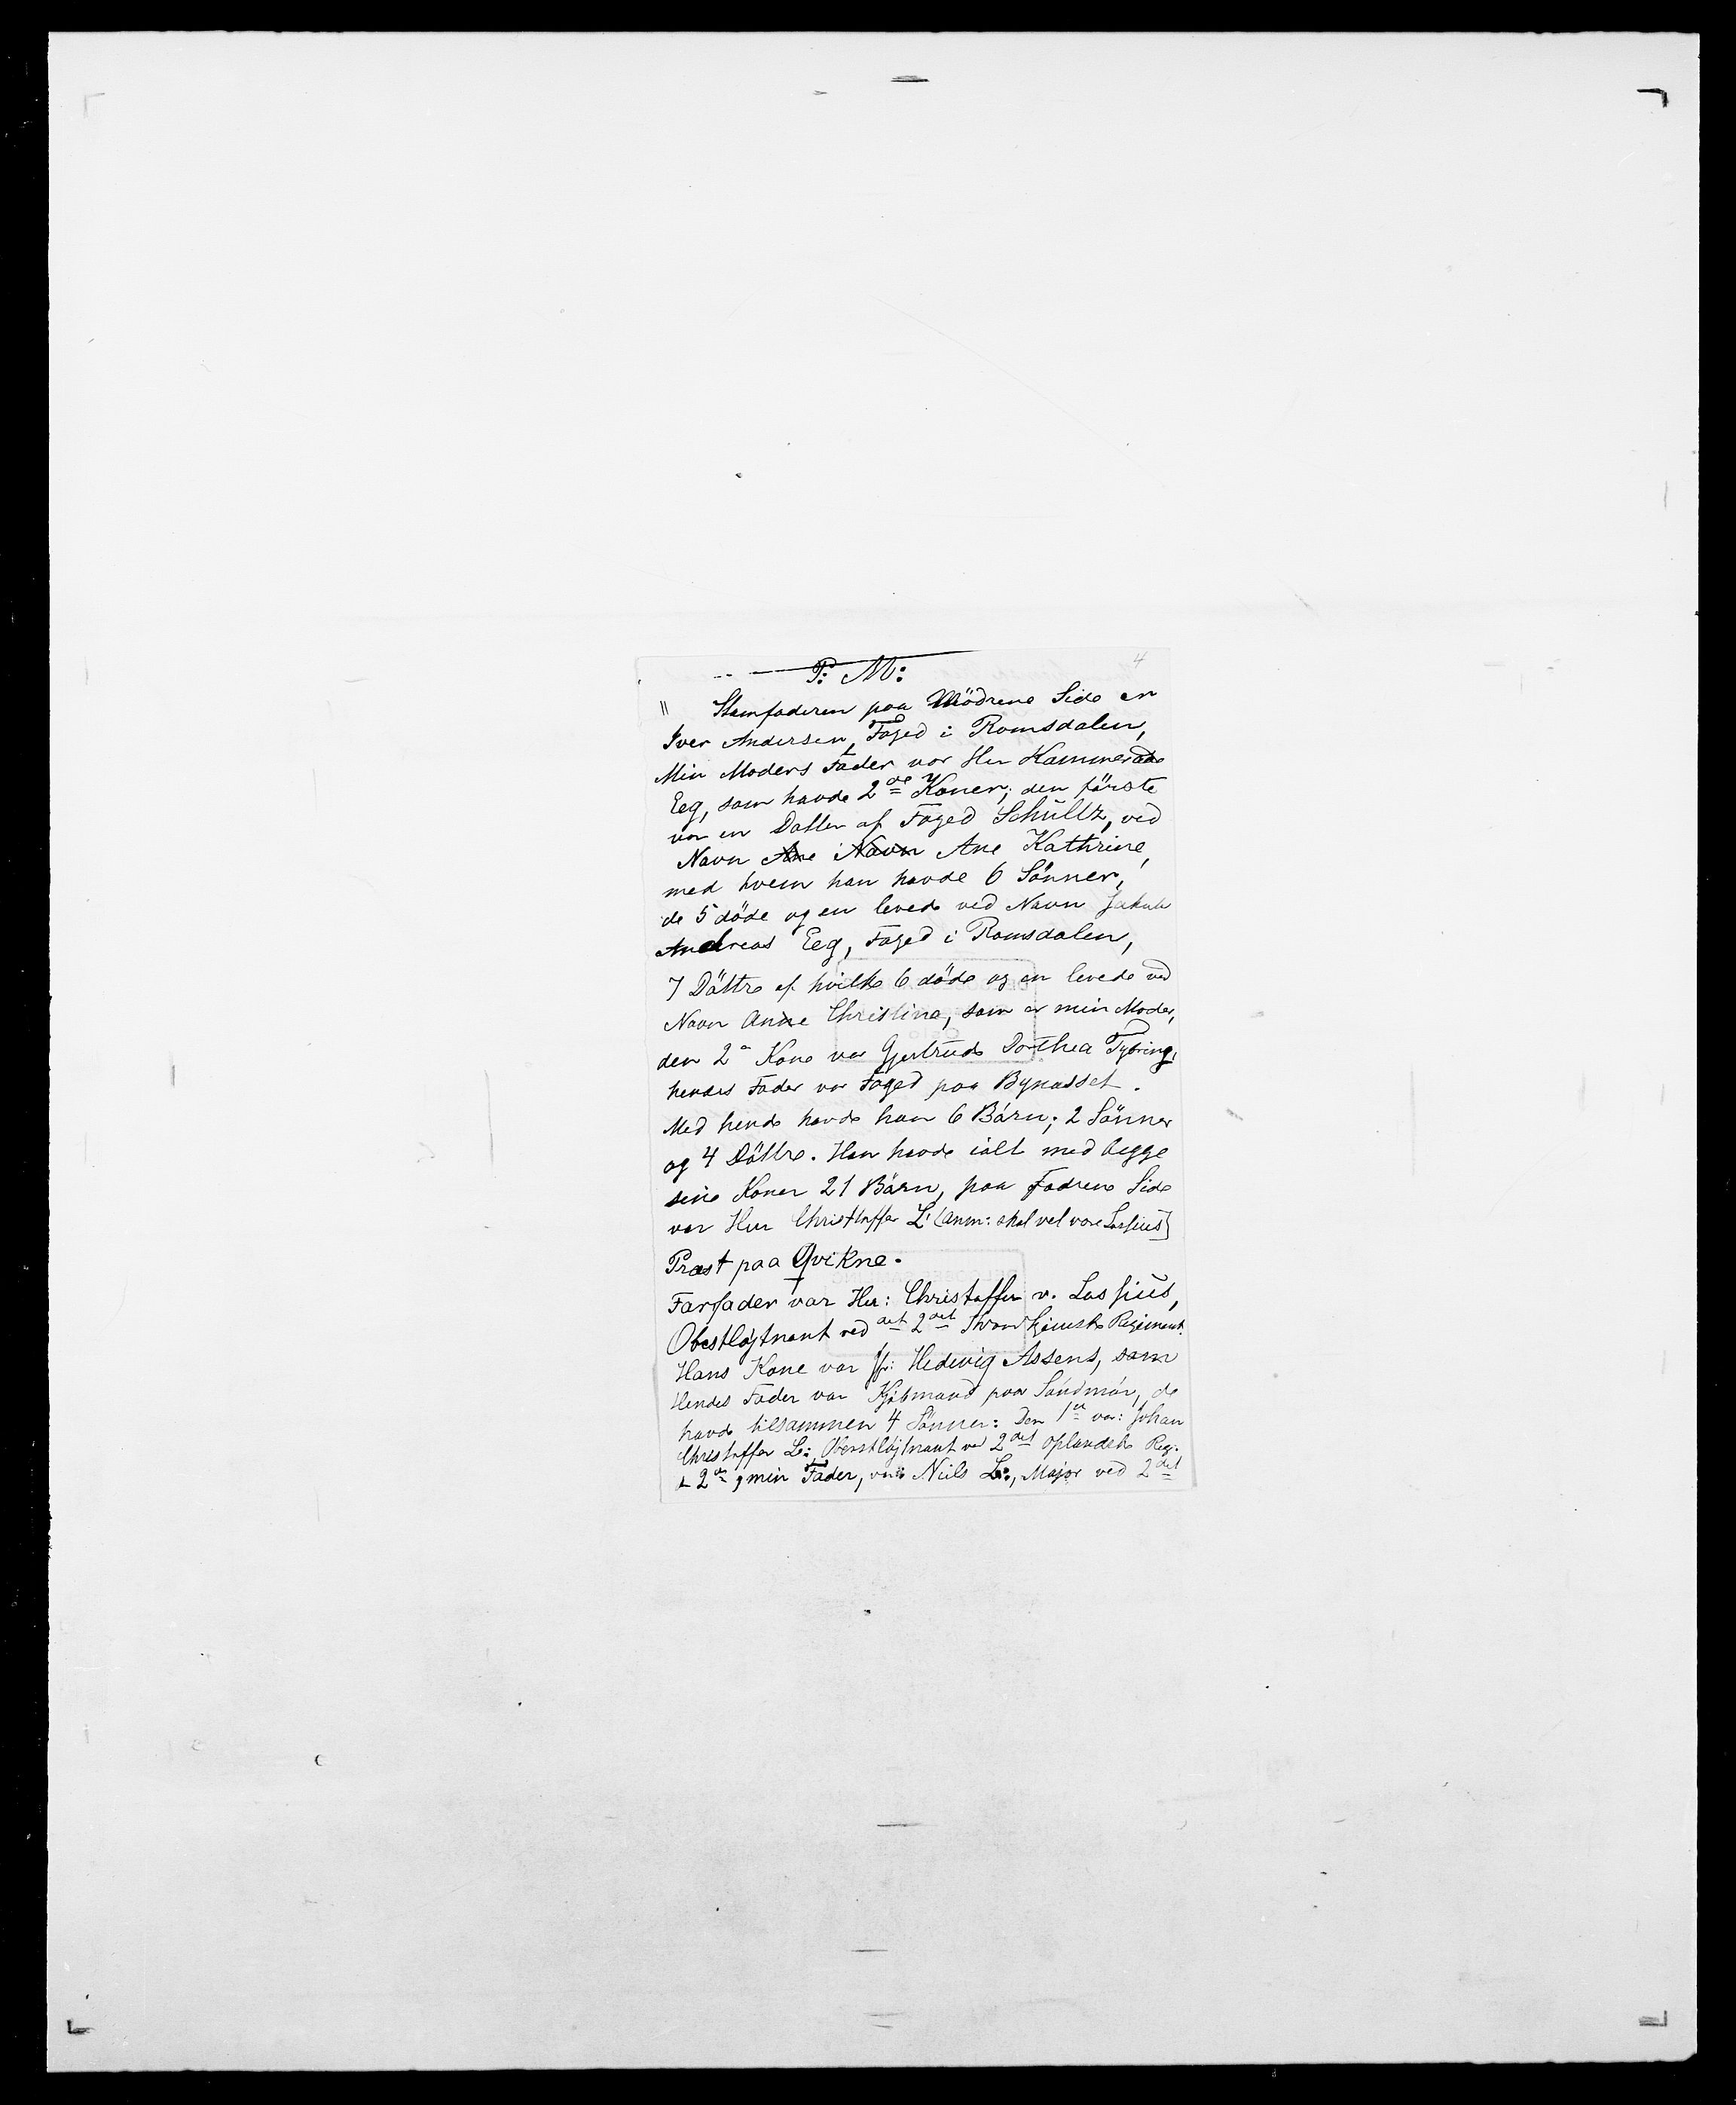 4
P: M:
" Stamfaderen paa Mödrene Side er
Iver Andersen, Foged i Romsdalen,
Min Moders Fader var Her Kammeraad
Eeg, som havde 2de Koner; den förste
var en Datter af Foged Schültz, ved
Navn Ane Navn Ane Kathrine,
med hvem han havde 6 Sönner,
de 5 döde og en levede ved Navn Jakob
Andreas Eeg, Foged i Romsdalen,
7 Döttre af hvilke 6 döde og en levede ved
Navn Anne Christine, som er min Moder,
den 2n Kone var Gjertrude Dorthea Tybring,
hendes Fader var Foged paa Bynæsset.
Med hende havde han 6 Bárn; 2 Sönner
og 4 Döttre. Han havde ialt med begge
sine Koner 21 Bárn, paa Fædrene Side
var Herr Christoffer L. (Anm: skal vel være Lossius)
Præst paa Qvikne.
Farfader var Her: Christoffer v. Lossiüs,
Obestlöjtnant ved det 2det Trondhjemske Regiment.
Hans Kone var Jfr: Hedevig Assens, som
Hendes Fader var Kjöbmand paa Söndmör, de
havde tilsammen 4 Sönner: Den 1ste var: Johan
Christoffer L:, Oberstlöjtnant ved 2det Oplandske Reg.
2den, min Fader, var Niels L:, Major ved 2det